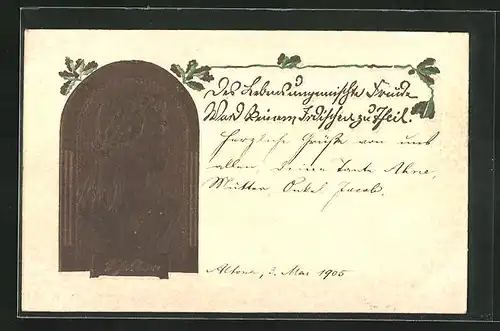 Des Lebens ungemischte Freude
Ward keinem Irdischen zu Theil.
Herzliche Grüße von uns
allen, deine Tante Ahne,
Mutter, Onkel Jacob.
Altona, 3. Mai 1905